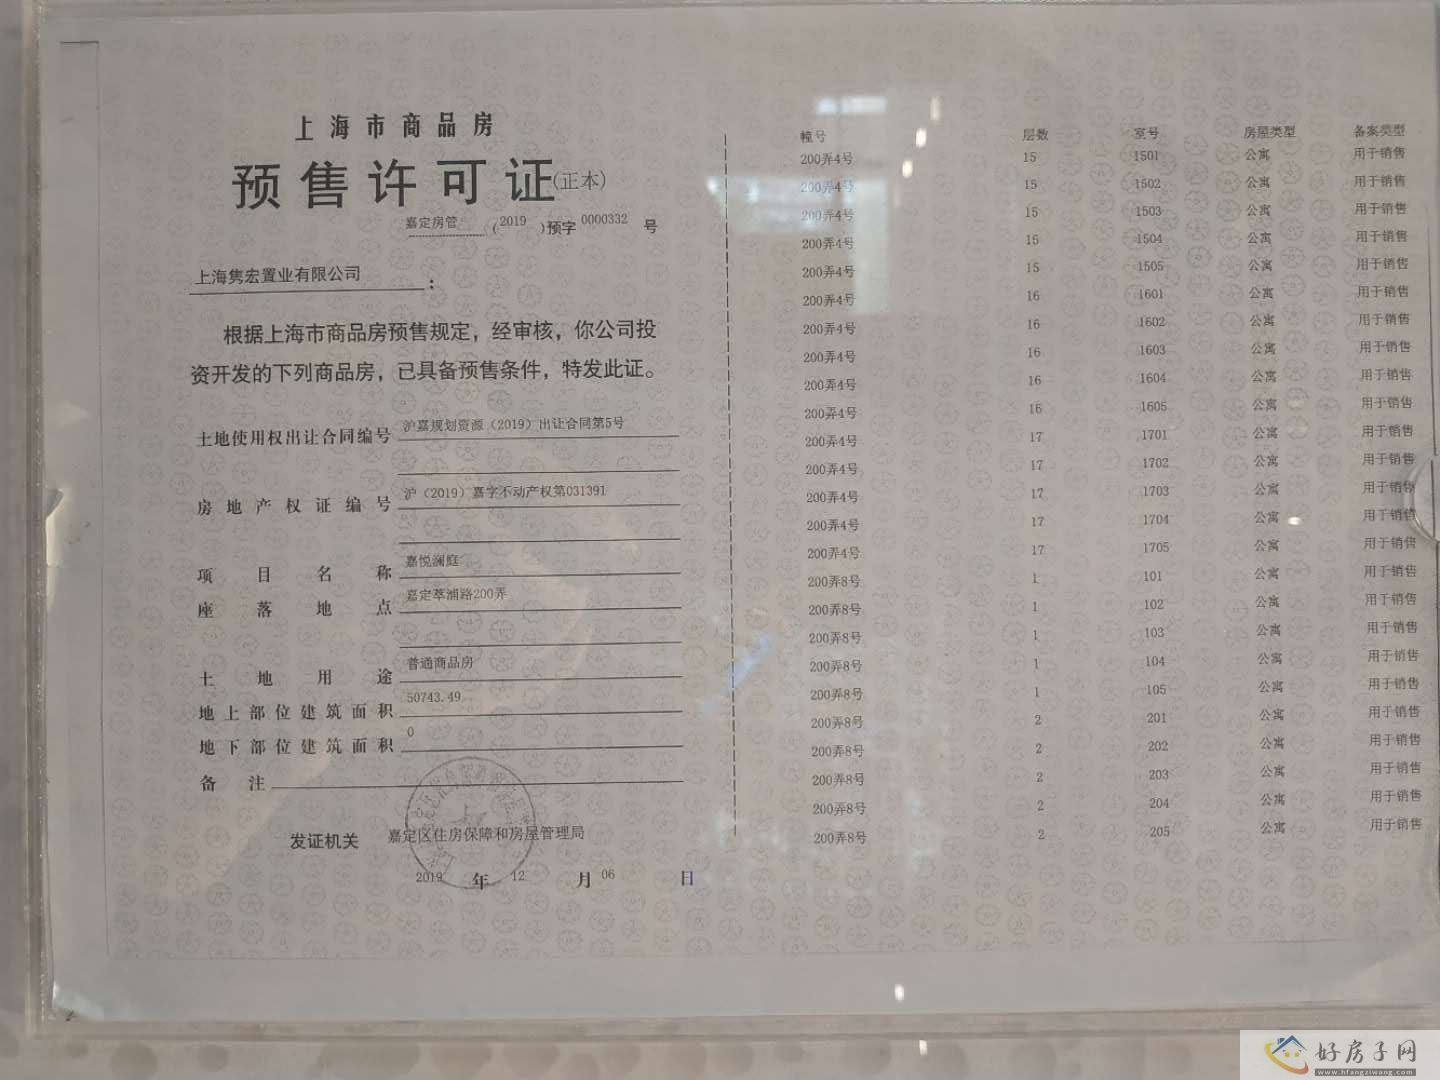 上海市商品房
预售许可证(正本)
嘉定房管 (2019)预字 0000332 号
上海隽宏置业有限公司:
根据上海市商品房预售规定，经审核，你公司投
资开发的下列商品房，已具备预售条件，特发此证。
土地使用权出让合同编号 沪嘉规划资源（2019）出让合同第5号
房地产权证编号 沪（2019）嘉字不动产权第031391
项目名称 嘉悦澜庭
座落地点 嘉定萃浦路200弄
土地用途 普通商品房
地上部位建筑面积 50743.49
地下部位建筑面积 0
备注
发证机关 嘉定区住房保障和房屋管理局
2019 年 12 月 06 日
幢号 层数 室号 房屋类型 备案类型
200弄4号 15 1501 公寓 用于销售
200弄4号 15 1502 公寓 用于销售
200弄4号 15 1503 公寓 用于销售
200弄4号 15 1504 公寓 用于销售
200弄4号 15 1505 公寓 用于销售
200弄4号 16 1601 公寓 用于销售
200弄4号 16 1602 公寓 用于销售
200弄4号 16 1603 公寓 用于销售
200弄4号 16 1604 公寓 用于销售
200弄4号 16 1605 公寓 用于销售
200弄4号 17 1701 公寓 用于销售
200弄4号 17 1702 公寓 用于销售
200弄4号 17 1703 公寓 用于销售
200弄4号 17 1704 公寓 用于销售
200弄4号 17 1705 公寓 用于销售
200弄8号 1 101 公寓 用于销售
200弄8号 1 102 公寓 用于销售
200弄8号 1 103 公寓 用于销售
200弄8号 1 104 公寓 用于销售
200弄8号 1 105 公寓 用于销售
200弄8号 2 201 公寓 用于销售
200弄8号 2 202 公寓 用于销售
200弄8号 2 203 公寓 用于销售
200弄8号 2 204 公寓 用于销售
200弄8号 2 205 公寓 用于销售
好房子网
www.hfangziwang.com